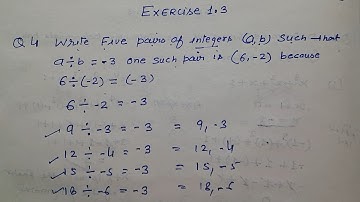 Exercise 1.3
Q.4 Write Five pairs of integers (a, b) Such that
a÷b = -3 one such pair is (6, -2) because
6÷(-2) = (-3)
6 ÷ -2 = -3
9 ÷ -3 = -3 = 9, -3
12 ÷ -4 = -3 = 12, -4
15 ÷ -5 = -3 = 15, -5
18 ÷ -6 = -3 = 18, -5